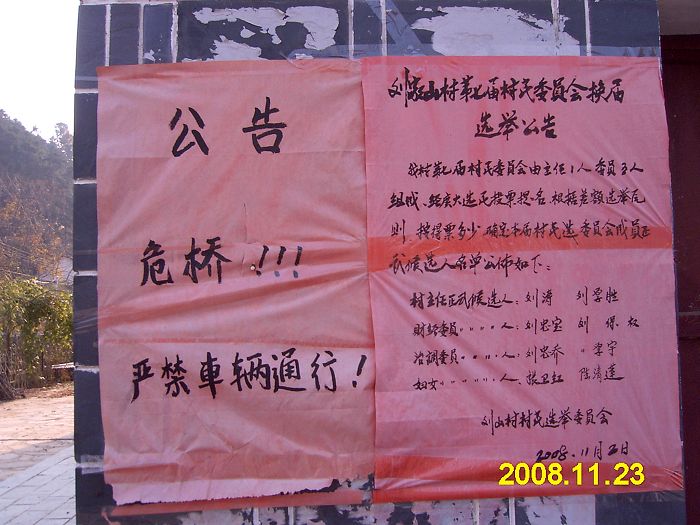 公告
危桥!!!
严禁車辆通行!
刘家山村第七届村民委员会换届
选举公告
我村第七届村民委员会由主任1人委员3人
组成、经广大选民投票提名、根据差额选举原
则、按得票多少、确定本届村民选委员会成员正
式候选人名单公佈如下:
村主任正式候选人:刘涛 刘学胜
财经委员〃〃〃〃人:刘宝 刘保权
治调委员〃〃〃〃人:刘乔 〃李宁
妇女〃〃〃〃〃〃人、張卫红 陈清莲
刘山村村民选举委员会
2008.11月2日
2008.11.23